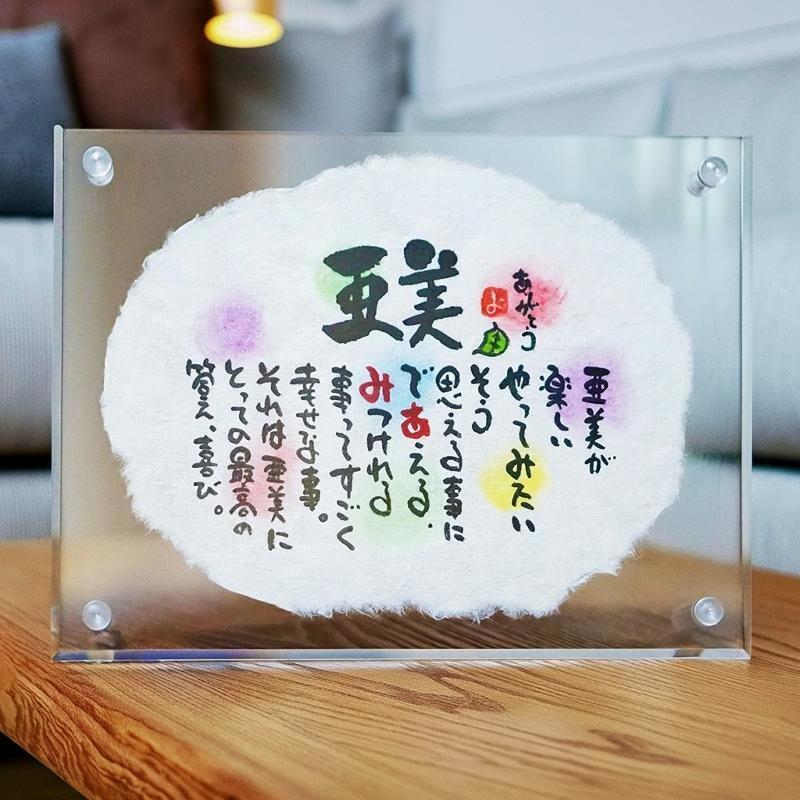 亜美
ありがとう
よ
亜美が
楽しい
やってみたい
そう
思える事に
であえる、
みつけれる
事ってすごく
幸せな事。
それは亜美に
とっての最高の
答え、喜び。